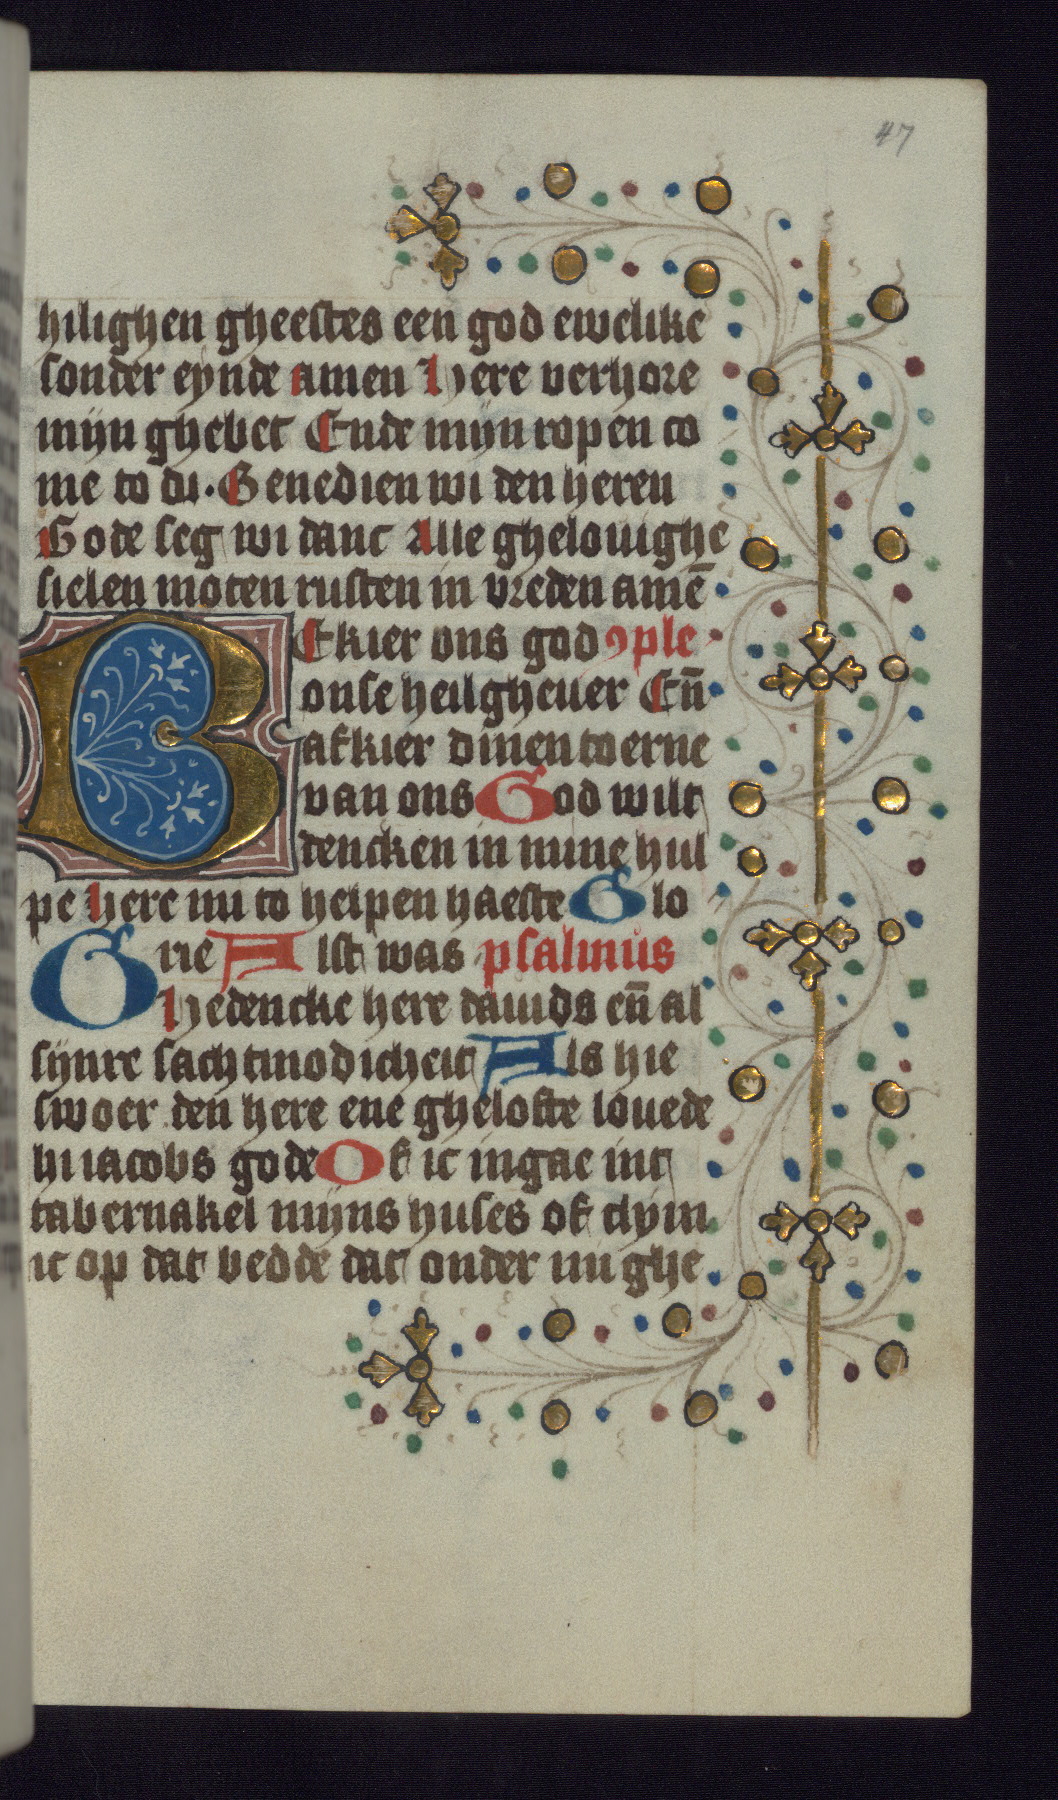 47
hilighen gheestes een god ewelike
sonder eynde amen Here verhore
mijn ghebet Ende mijn ropen co
me to di. Benedien wi den heren
Gode seg wi danc Alle ghelouighe
sielen moten rusten in vreden amē
BEkier ons god ꝯple
onse heilgheuer Eñ
afkier dinen toerne
van ons God wilt
dencken in mine hul
pe here nu to helpen haeste Glo
rie Alst was psalmus
Ghedencke here dauids eñ al
sijnre sachtmodicheit Als hie
swoer den here ene ghelofte louede
hi iacobs gode Of ic ingae int
tabernakel mijns huses of clym
ic op dat bedde dat onder mi ghe